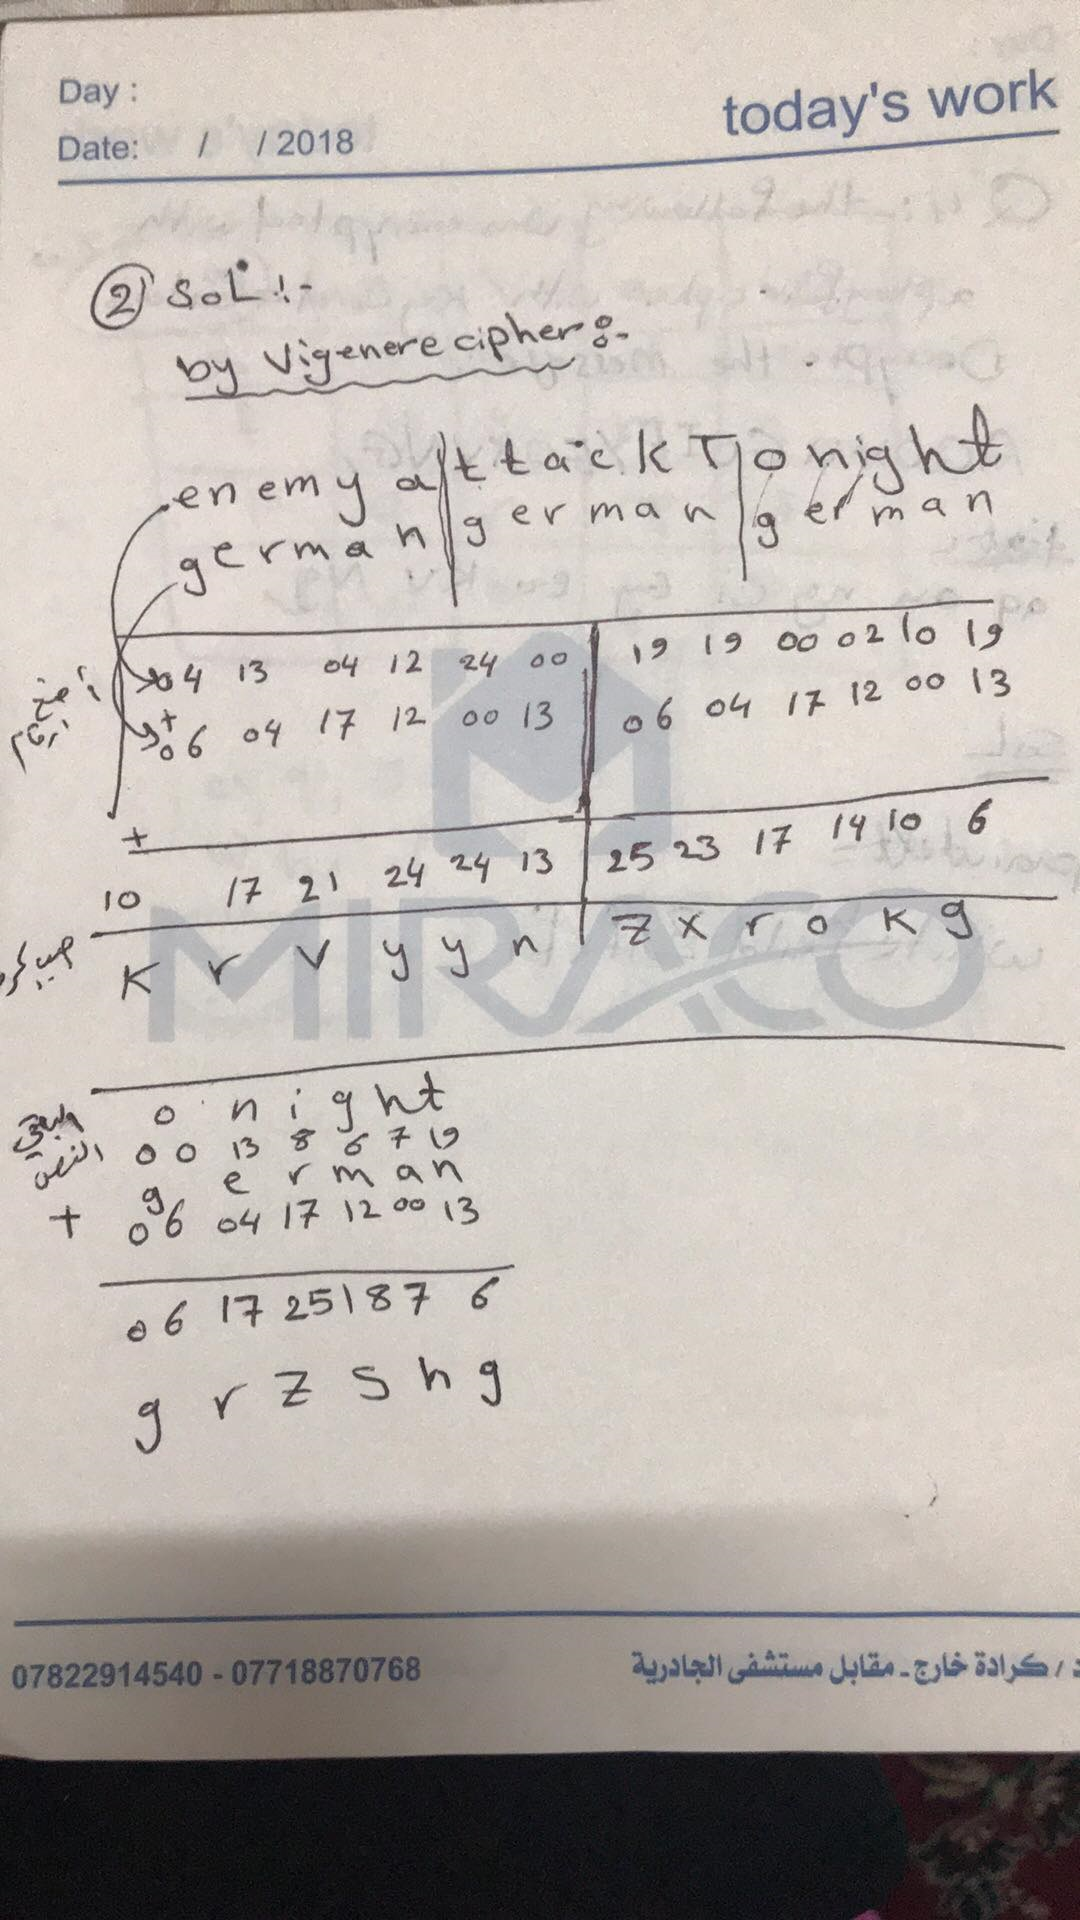 Day :
today's work
Date: / / 2018
② Sol :-
by Vigenere cipher :-
enemy a|ttackT|onight
german|german|german
04 13 04 12 24 00 | 19 19 00 02 10 19
+
06 04 17 12 00 13 | 06 04 17 12 00 13
+
10 17 21 24 24 13 | 25 23 17 14 10 6
K r v y y n | Z x r o k g
o n i g h t
00 13 8 6 7 19
g e r m a n
+ 06 04 17 12 00 13
06 17 25 18 7 6
g r z s h g
MIRACO
07822914540 - 07718870768
كرادة خارج ـ مقابل مستشفى الجادرية